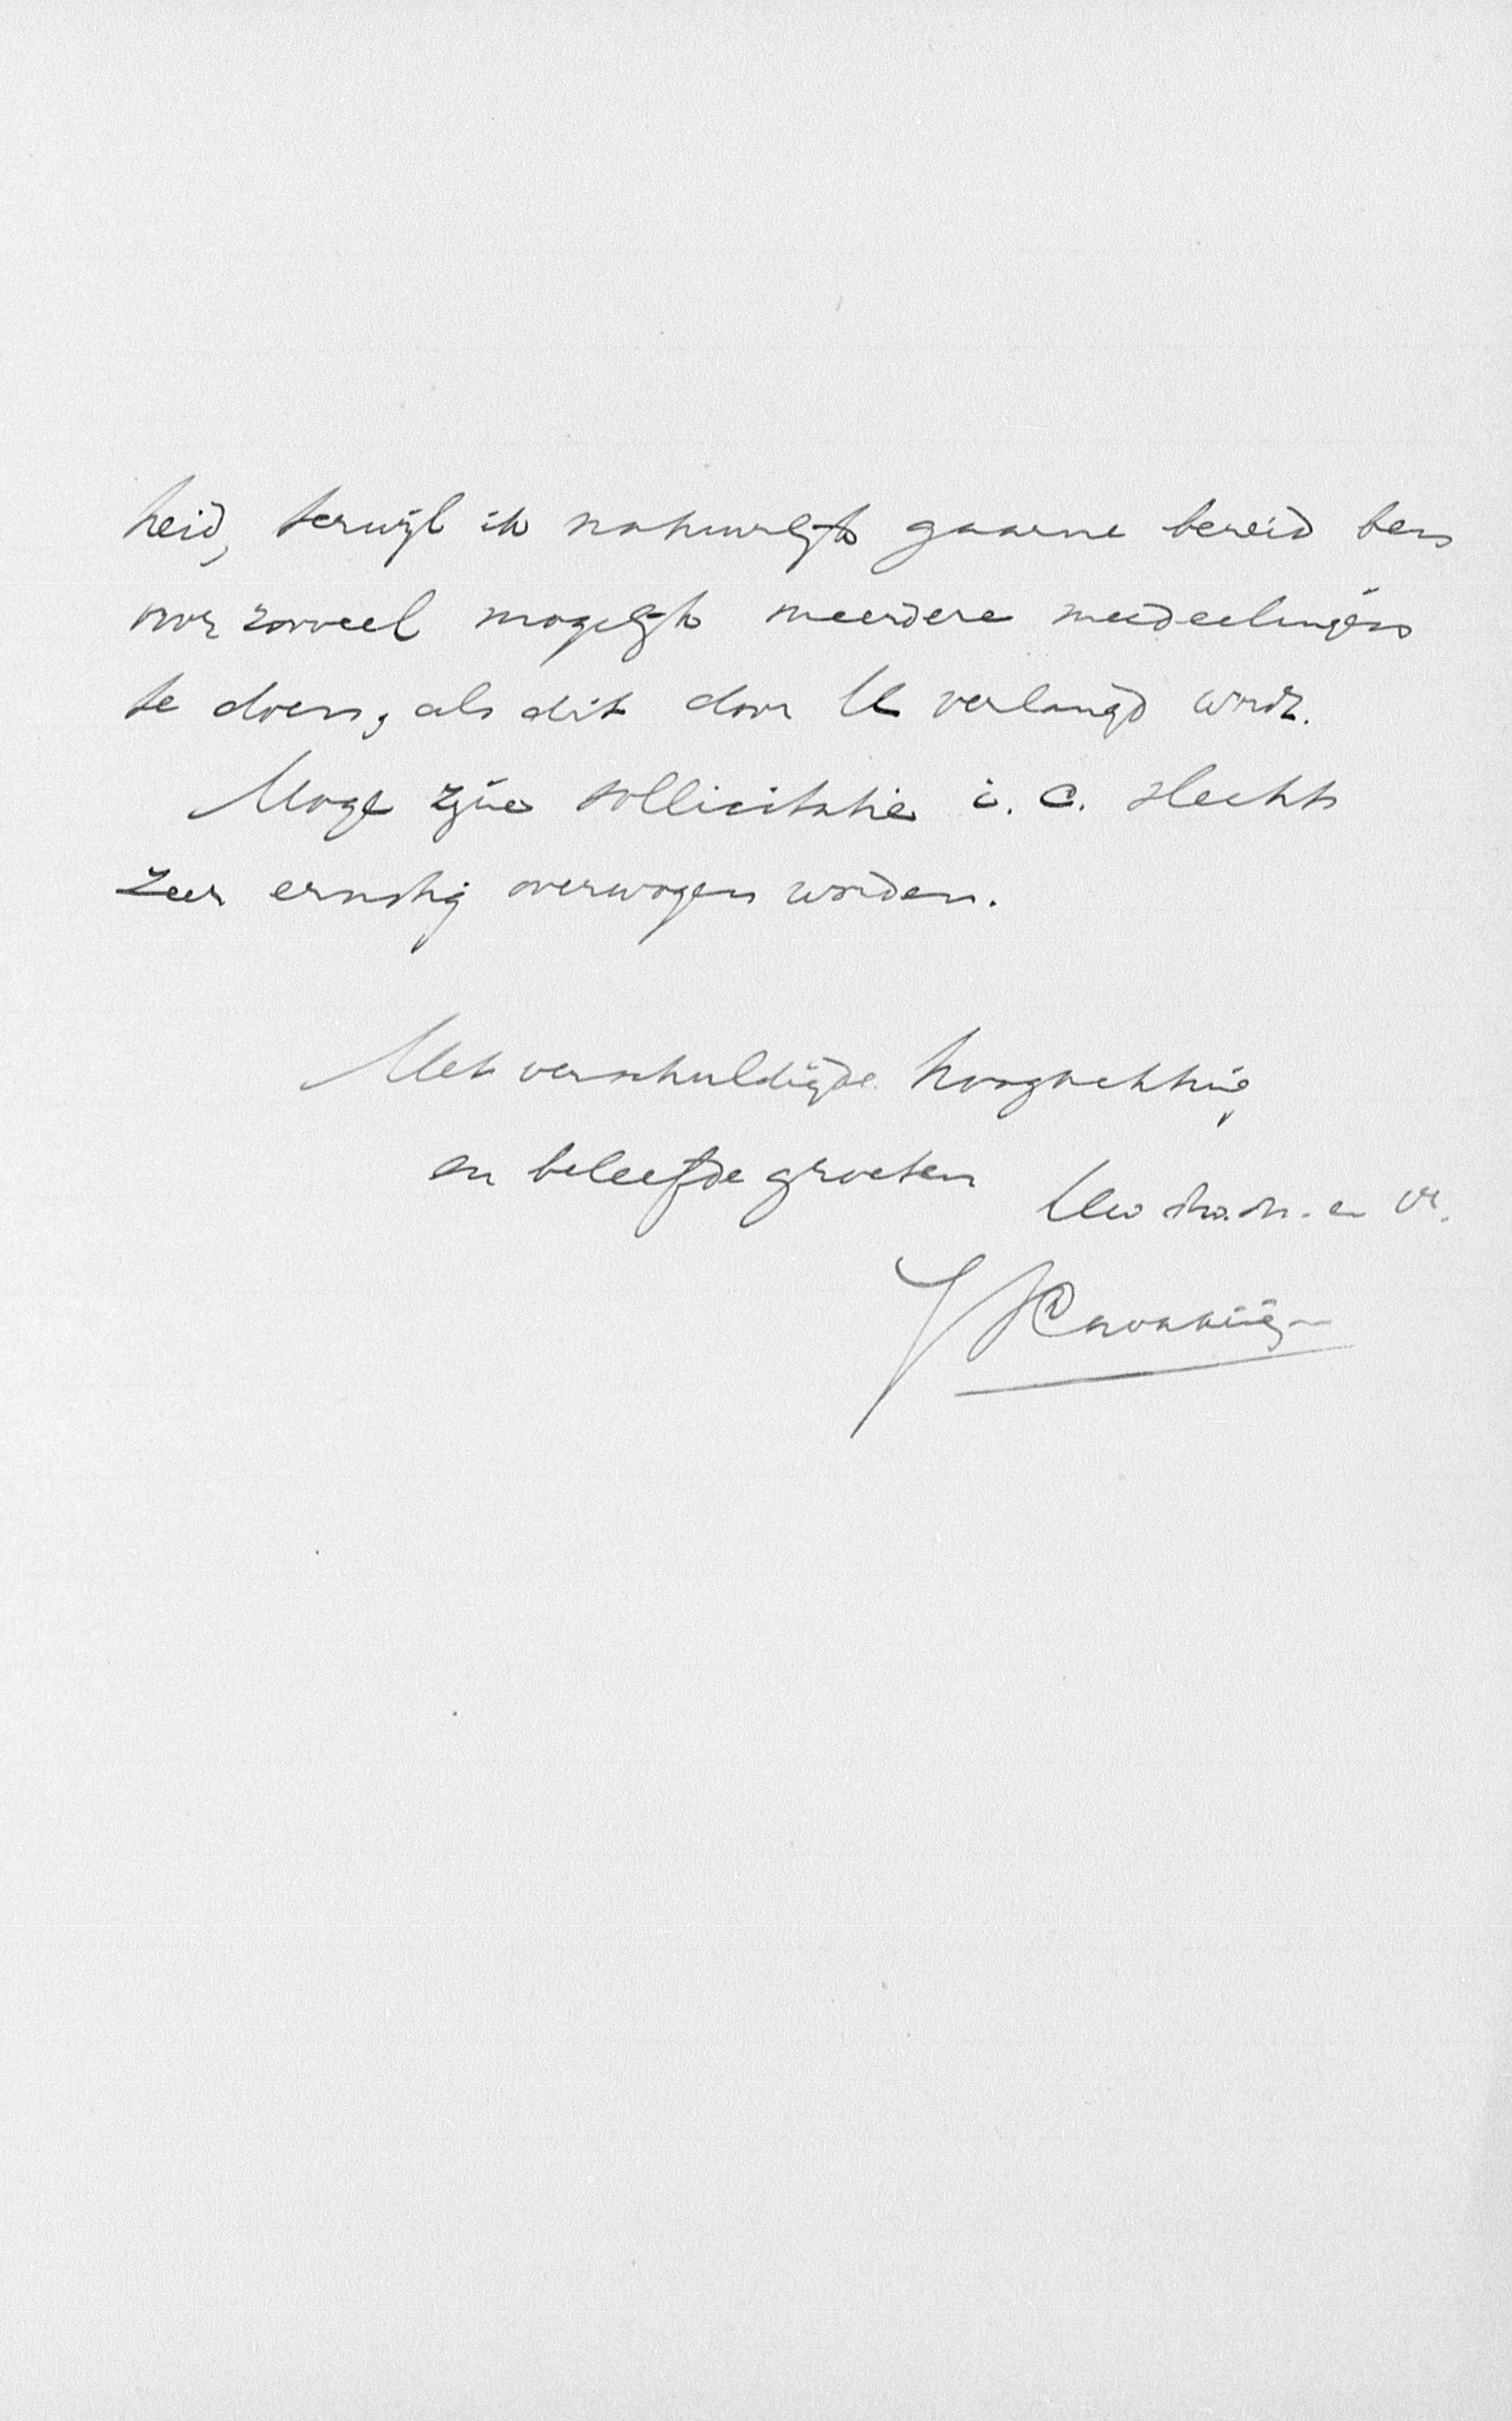 heid, terwijl ik natuurlijk gaarne bereid ben
voor zooveel mogelijk meerdere mededeelingen
te doen, als dit door U verlangd wordt.
Moge zijne sollicitatie i. c. slechts
zeer ernstig overwogen worden.
Met verschuldigde hoogachting
en beleefde groeten
Uw dw. dr. en vr.